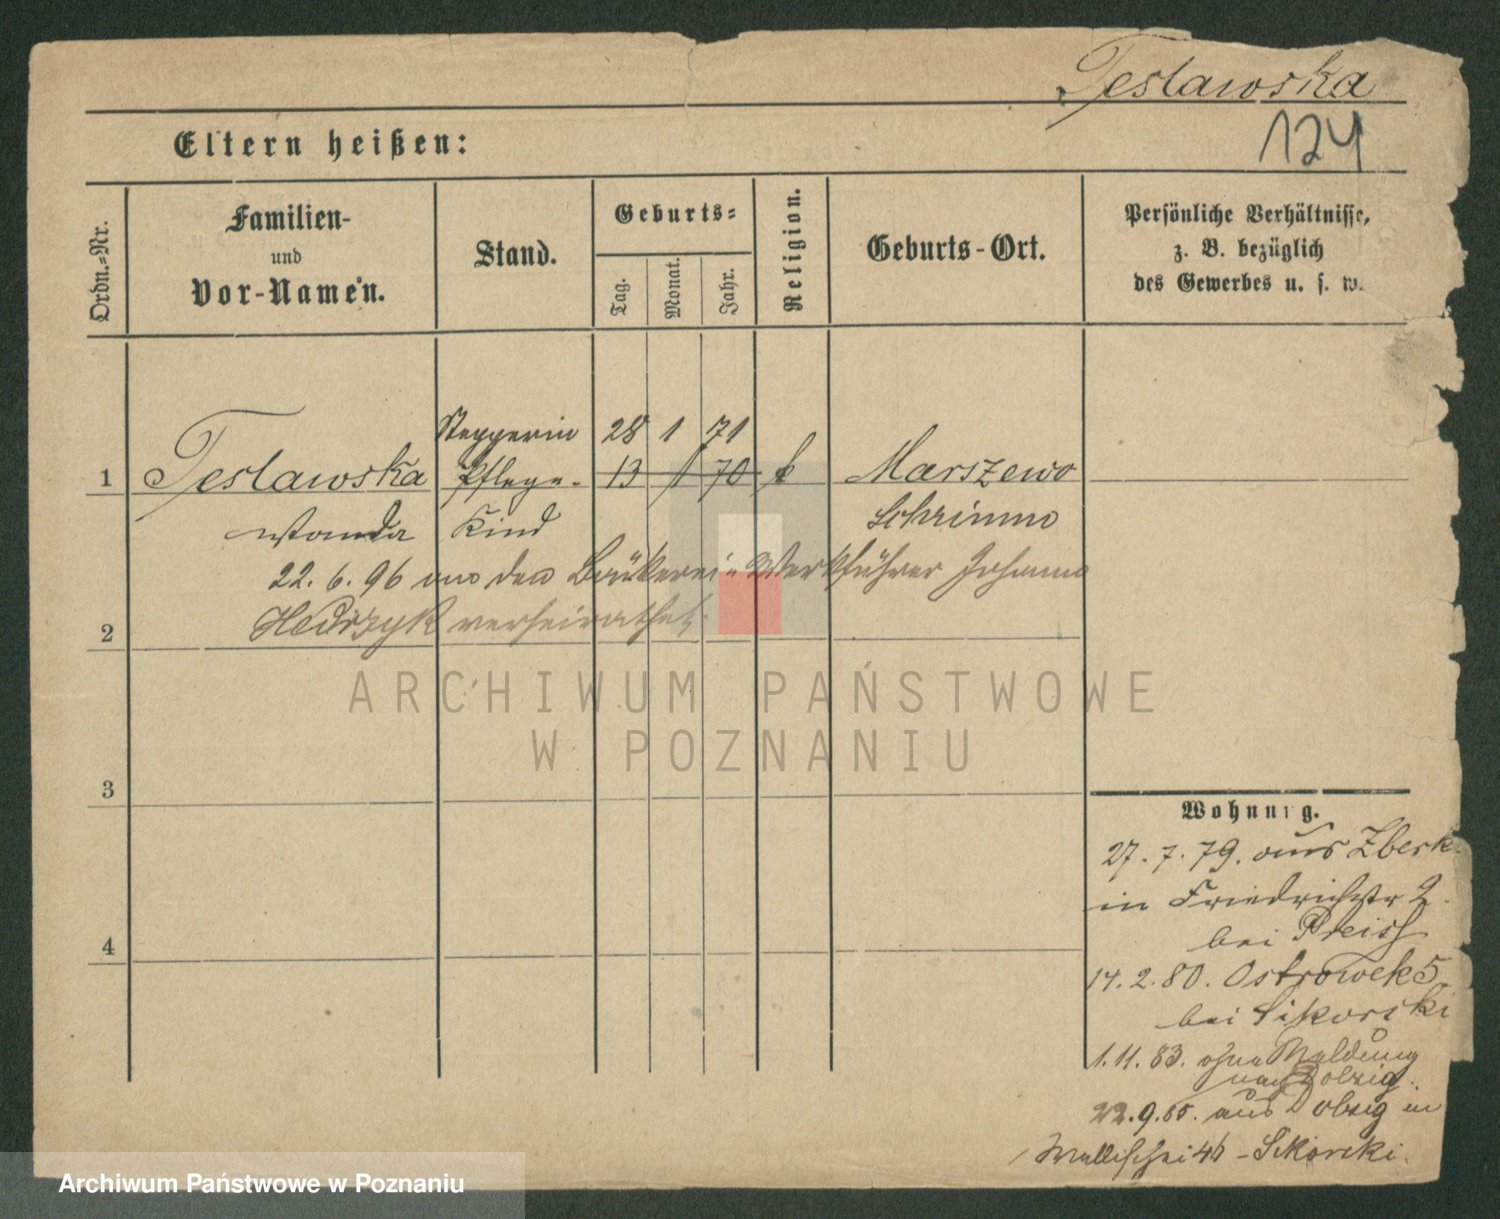 Teslawska
124
Eltern heißen:
Ordn.-Nr.
Familien-
und
Vor-Namen.
Stand.
Geburts-
Tag.
Monat.
Jahr.
Religion.
Geburts-Ort.
Persönliche Verhältnisse,
z. B. bezüglich
des Gewerbes u. s. w.
Stepperin 28 1 71
1 Teslawska Pflege- 13 1 70 k Marszewo
Wanda Kind Schrimm
22. 6. 96 an den Bäckerei-Werkführer Johann
verheirathet.
2
ARCHIWUM PAŃSTWOWE
W POZNANIU
3
Wohnung.
27. 7. 79. aus
in Friedrichstr 2.
bei Preiss
4
14. 2. 80. Ostrowek 5.
bei Sikorski
1. 11. 83. ohne Meldung
nach Dolzig.
22. 9. 85. aus Dolzig in
Wallischei - Sikorski.
Archiwum Państwowe w Poznaniu